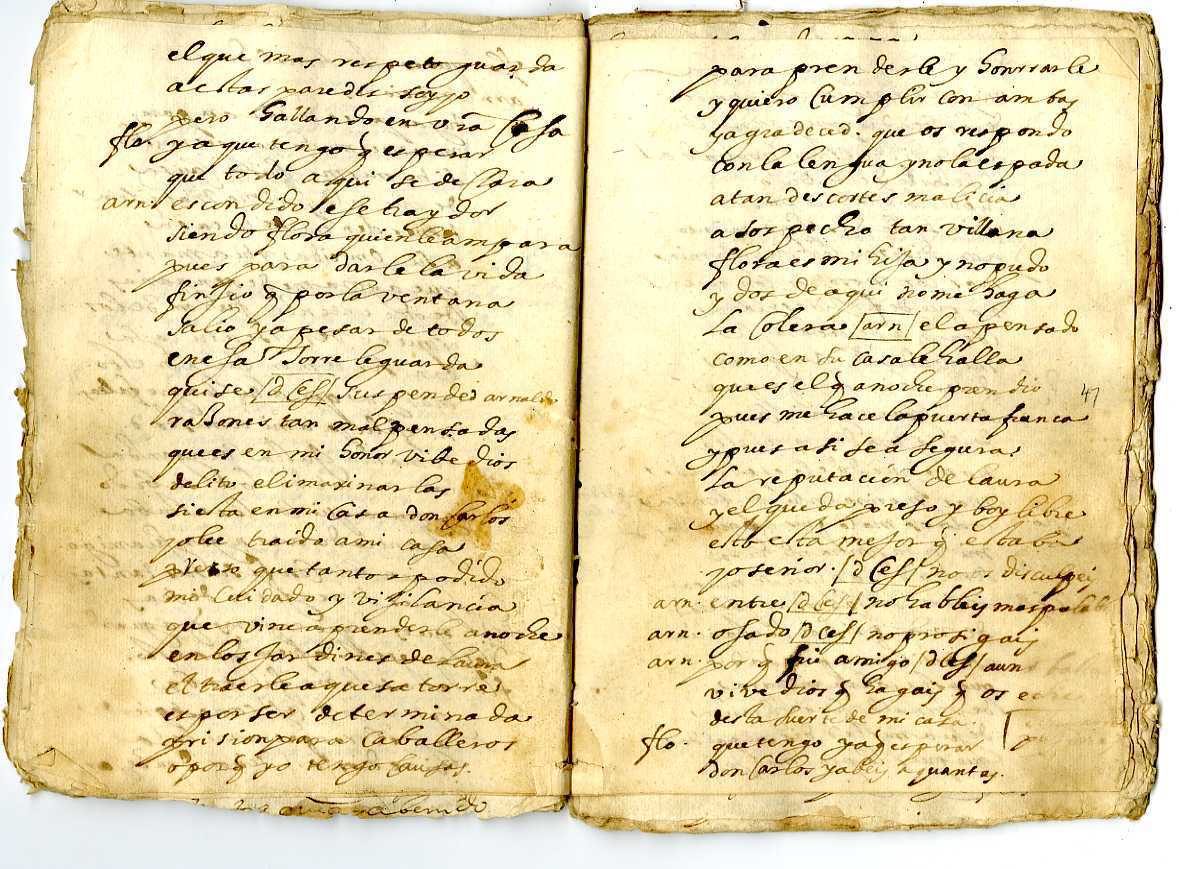 el que mas respeto guarda
a estas paredes soy yo
pero hallando en vra Casa
flo. ya que tengo q̃ esperar
que todo aqui se declara
arn. escondido ese traydor
siendo flora quien le ampara
pues para darle la vida
finjio q̃ por la ventana
salio y a pesar de todos
en esa torre le guarda
quise /d Ces/ suspended arnaldo
rasones tan mal pensadas
que es en mi honor vibe dios
delito el imaxinarlas
si esta en mi Casa don Carlos
yo le traido a mi casa
preso que tanto a podido
mi Cuidado y vijilancia
que vine a prenderle anoche
en los Jardines de Laura
el traerle a quesa torre
es por ser determinada
prision para Caballeros
o por q̃ yo tengo Causas.
para prenderle y honrrarle
y quiero Cumplir con ambas
y agradeced. que os respondo
con la lengua y no la espada
a tan descortes malicia
a sospecha tan villana
flora es mi hija y no pudo
y dos de aqui no me haga
La Colera /arn/ el a pensado
como en su casa le halla
que es el q̃ anoche prendio
47
pues me hace la puerta franca
y pues asi se asegura
La reputacion de laura
y el queda preso y boy libre
esto esta mejor q̃ estaba
yo señor. /d Ces/ no os disculpeis
arn. entre /d Ces/ no hableis mas
arn. osado /d Ces/ no prosigais
arn. por q̃ fue amigo /d Ces/ aun
vive dios q̃ hagais q̃ os
desta suerte de mi casa.
flo. que tengo ya q̃ esperar
don Carlos ya beis a quantas.